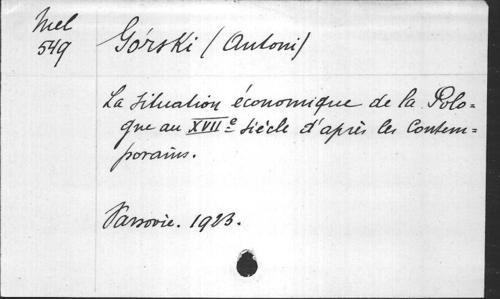 Mel
549
Górski (Antoni)
La situation économique de la Polo=
gne au XVIIe siècle d'après les Contem=
porains.
Varsovie. 1923.